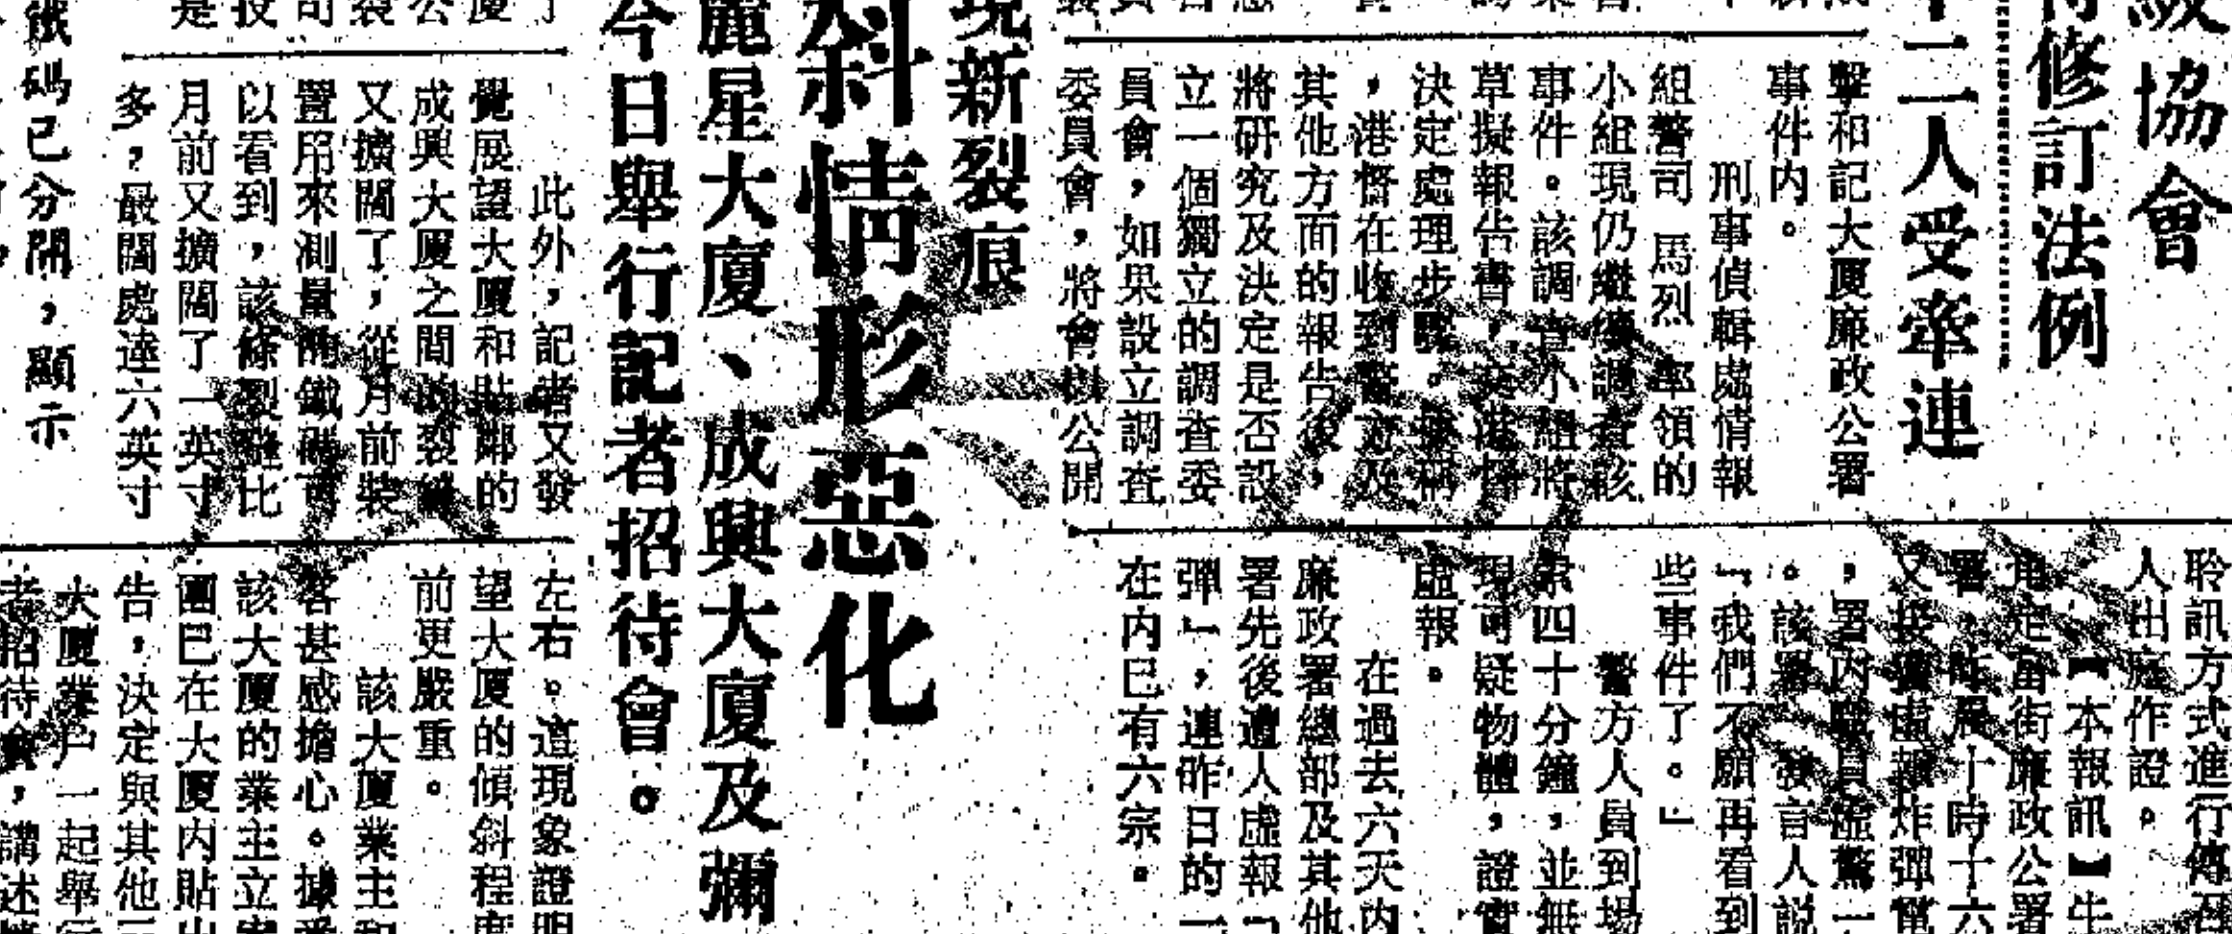 級協會
修訂法例
十二人受牽連
擊和記大厦廉政公署
事件內。
刑事偵輯處情報
組警司馬烈率領的
小組現仍繼續調查該
事件。該調查小組將
草擬報告書,交港督
決定處理步驟。據稱
,港督在收到警方及
其他方面的報告後,
將研究及決定是否設
立一個獨立的調查委
員會,如果設立調查
委員會,將會以公開
聆訊方式進行
人出庭作證。
【本報訊】
街廉政公署
署,昨晨十時十六
又接獲虛報炸彈
,署內職員虛驚一
。該署發言人說
「我們不願再看到
些事件了。」
警方人員到場
四十分鐘,並無
現可疑物體,證實
虛報。
在過去六天內
廉政署總部及其他
署先後遭人虛報「
彈」,連昨日的一
在內已有六宗。
現新裂痕
斜情形惡化
麗星大廈、成興大廈及彌
今日舉行記者招待會。
此外,記者又發
覺展望大厦和貼鄰的
成興大厦之間的裂縫
又擴闊了,從月前裝
置用來測量的鐵碼可
以看到,該條裂縫比
月前又擴闊了一英寸
多,最闊處達六英寸
左右。這現象證明
望大厦的傾斜程度
前更嚴重。
該大厦業主和
客甚感擔心。據
該大厦的業主立案
團已在大厦內貼出
告,決定與其他
大厦業戶一起舉行
者招待會,講述
鐵碼已分開,顯示